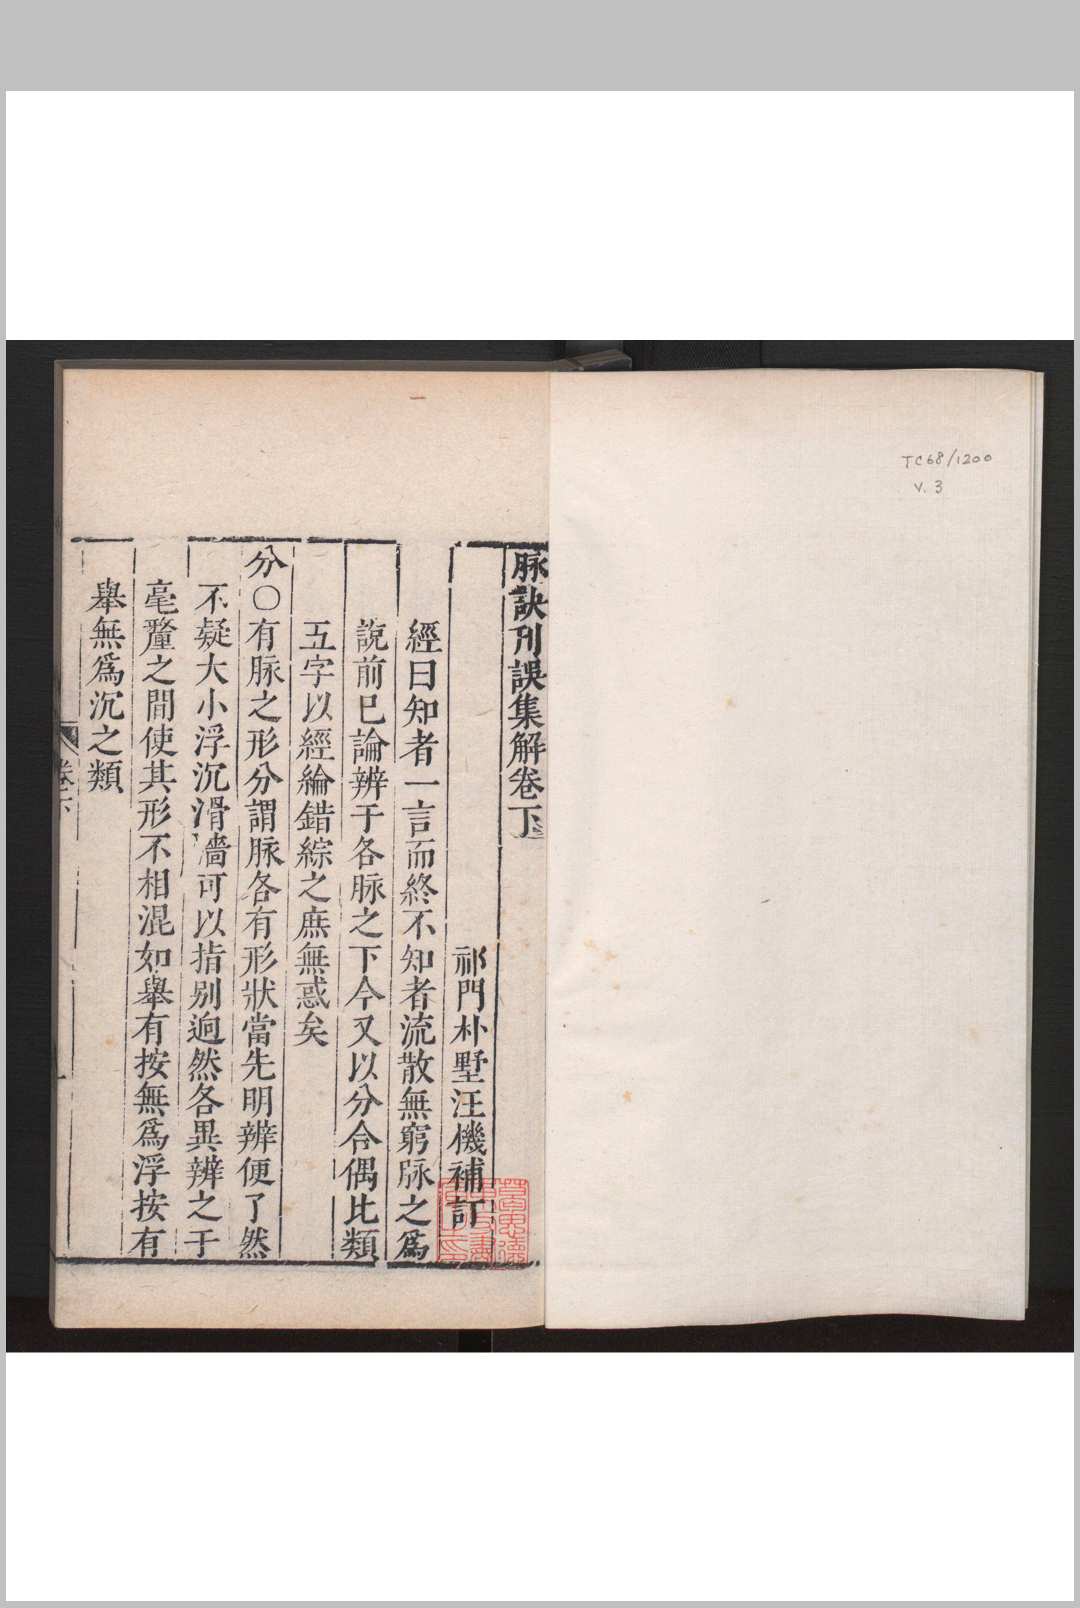 TC68/1200
V. 3
脉訣刋誤集解卷下
祁門朴墅汪機補訂
經曰知者一言而終不知者流散無窮脉之爲
說前已論辨于各脉之下今又以分合偶比類
五字以經綸錯綜之庶無惑矣
分〇有脉之形分謂脉各有形狀當先明辨便了然
不疑大小浮沉滑濇可以指别逈然各異辨之于
毫釐之間使其形不相混如舉有按無爲浮按有
舉無爲沉之類
卷下
一